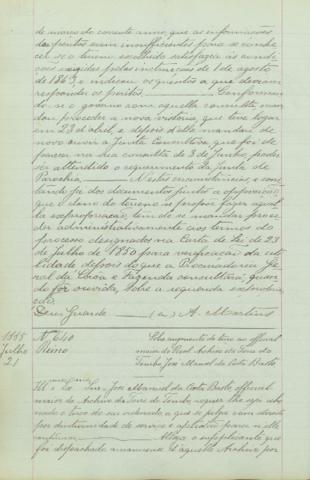 de março do corrente anno, que as informações
dos peritos eram insufficientes para se conhe
cer se o terreno escolhido satisfazia ás condi
ções exigidas pelas instrucções de 1 de agosto
de 186 e indicou os quesitos a que deviam
responder os peritos. Conforman
do-se o governo com aquella consulta man
dou proceder a nova vistoria, que teve logar
em 23 d'abril, e depois d'ella mandou de
novo ouvir a Junta Consultiva que foi de
parecer na sua consulta de 3 de Junho, poder
ser attendido o requerimento da Junta de
Parochia. N'estas circumstancias, e cons
tando já dos documentos juntos a opposição,
que o dono do terreno se propoz fazer áquel
la expropriação, tem de se mandar proce
der administrativamente aos termos do
processo designados na Carta de Lei de 23
de Julho de 1850 para verificação da uti
lidade depois do que a Procuradoria Ge
ral da Corôa e Fazenda consultará, quan
do fôr ouvida, sobre a requerida expropria
ção.
Deus Guarde (a) A. Martins
1888
Julho
21
Nº 640
Reino
Sobre augmento de terço ao official
maior do Real Archivo da Torre do
Tombo, José Manuel da Costa Basto
Illmo e Exmo Snr José Manuel da Costa Basto, official
maior do Archivo da Torre do Tombo, requer lhe seja abo
nado o terço do seu ordenado, a que se julga com direito
por diuturnidade de serviço e aptidão para n'elle
continuar. Allega o supplicante que
foi despachado amanuense d'aquelle Archivo por